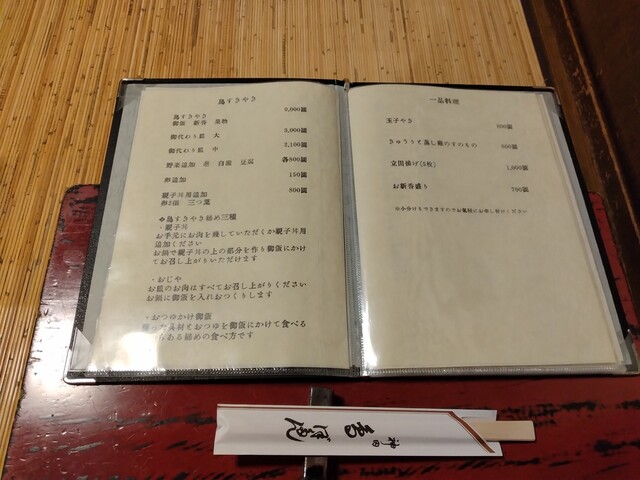 鳥すきやき
鳥すきやき 9,000圓
御飯 新香 果物
御代わり皿 大 3,000圓
御代わり皿 中 2,100圓
野菜追加 葱 白滝 豆腐 各800圓
卵追加 150圓
親子丼用追加 800圓
卵2個 三つ葉
❖鳥すきやき締め三種
・親子丼
お手元にお肉を残していただくか親子丼用
追加ください
お鍋で親子丼の上の部分を作り御飯にかけ
てお召し上がりいただけます
・おじや
お皿のお肉はすべてお召し上がりください
お鍋に御飯を入れおつくりします
・おつゆかけ御飯
残った具材とおつゆを御飯にかけて食べる
ある締めの食べ方です
一品料理
玉子やき 800圓
きゅうりと蒸し鶏のすのもの 900圓
立田揚げ(5枚) 1,000圓
お新香盛り 700圓
※小分けもできますのでお気軽にお申し付けください
神田
ぼたん